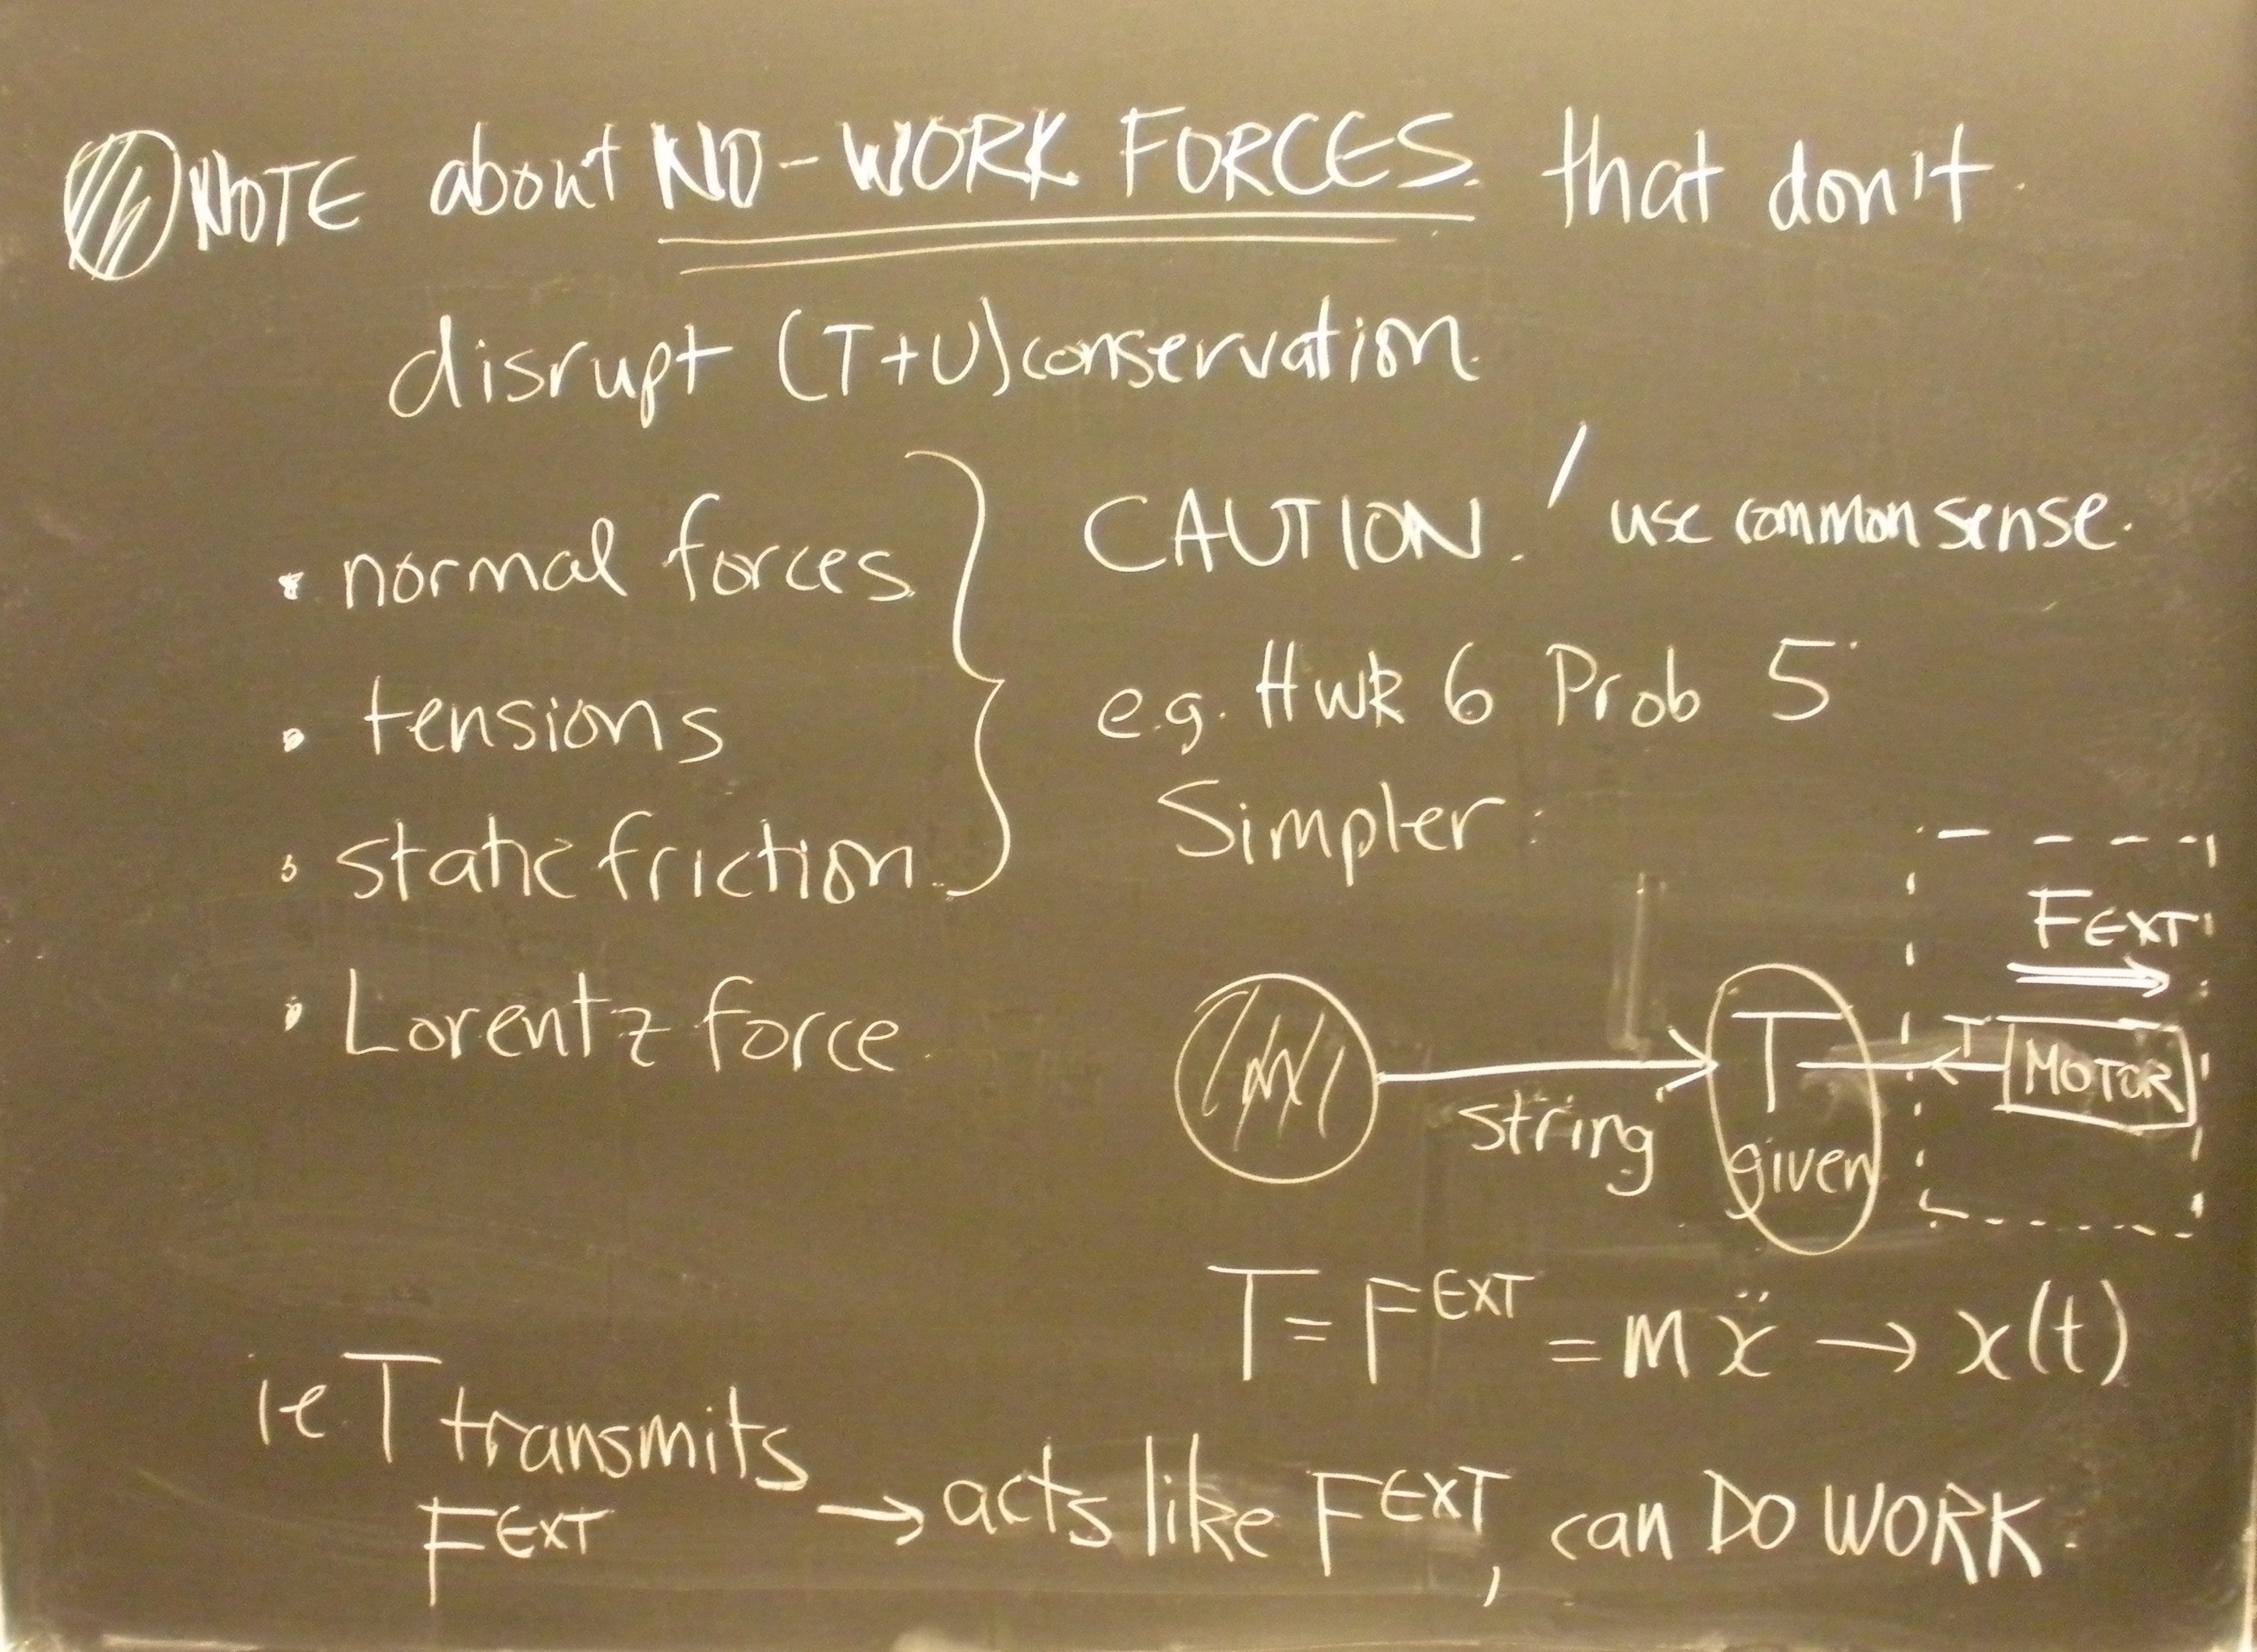 NOTE about NO-WORK FORCES that don't
disrupt (T+U) conservation
• normal forces
• tensions
• static friction
• Lorentz force
CAUTION! use common sense.
e.g. Hwk 6 Prob 5
Simpler:
FEXT
m
string
T
given
T
MOTOR
T = F^EXT = mẍ → x(t)
ie T transmits
F^EXT → acts like F^EXT, can DO WORK.